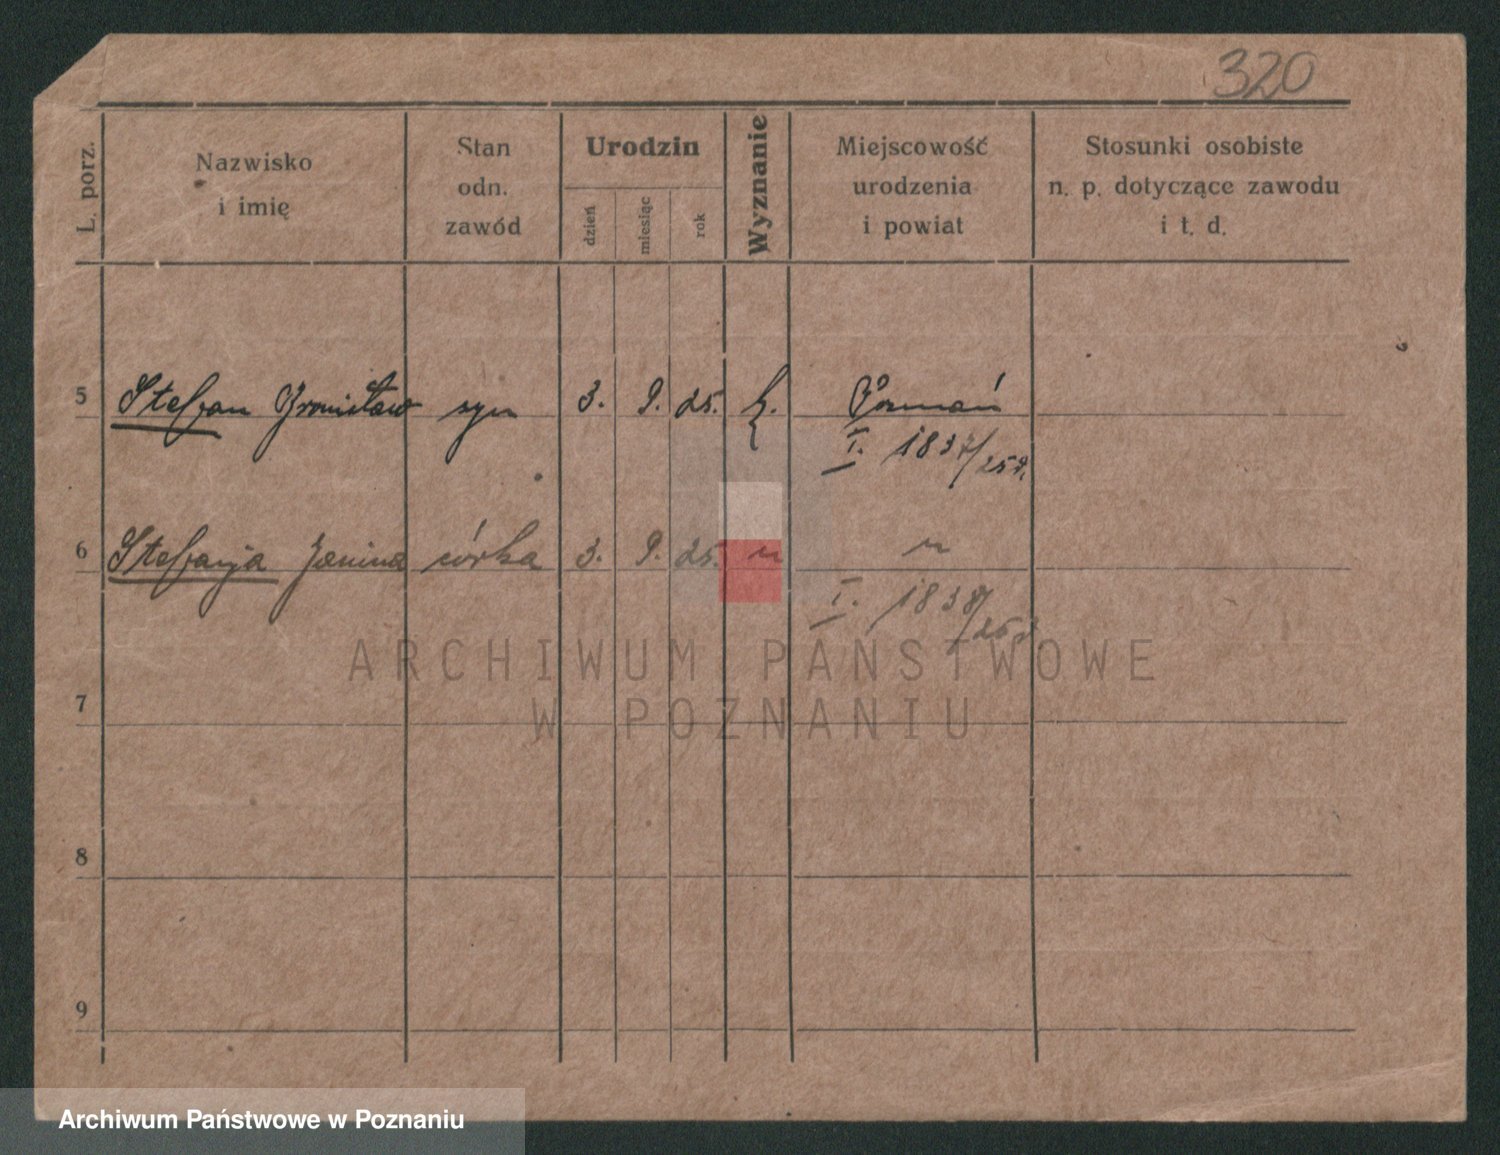 320
L. porz.
Nazwisko
i imię
Stan
odn.
zawód
Urodzin
dzień
miesiąc
rok
Wyznanie
Miejscowość
urodzenia
i powiat
Stosunki osobiste
n. p. dotyczące zawodu
i t. d.
5 Stefan Bronisław syn 3. 9. 25. k. Poznań
I. 1837/25
6 Stefanja Janina córka 3. 9. 25. " "
I. 1838/25
7
8
9
ARCHIWUM PAŃSTWOWE
W POZNANIU
Archiwum Państwowe w Poznaniu